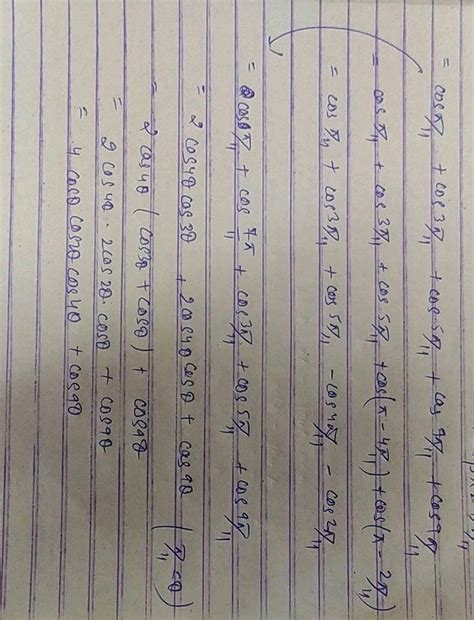 = cos π/11 + cos 3π/11 + cos 5π/11 + cos 7π/11 + cos 9π/11
= cos π/11 + cos 3π/11 + cos 5π/11 + cos(π - 4π/11) + cos(π - 2π/11)
= cos π/11 + cos 3π/11 + cos 5π/11 - cos 4π/11 - cos 2π/11
= cos π/11 + cos 7π/11 + cos 3π/11 + cos 5π/11 + cos 9π/11
= 2 cos4θ cos3θ + 2 cos4θ cosθ + cos9θ (π/11 = θ)
= 2 cos4θ (cos3θ + cosθ) + cos9θ
= 2 cos4θ · 2cos2θ · cosθ + cos9θ
= 4 cosθ cos2θ cos4θ + cos9θ